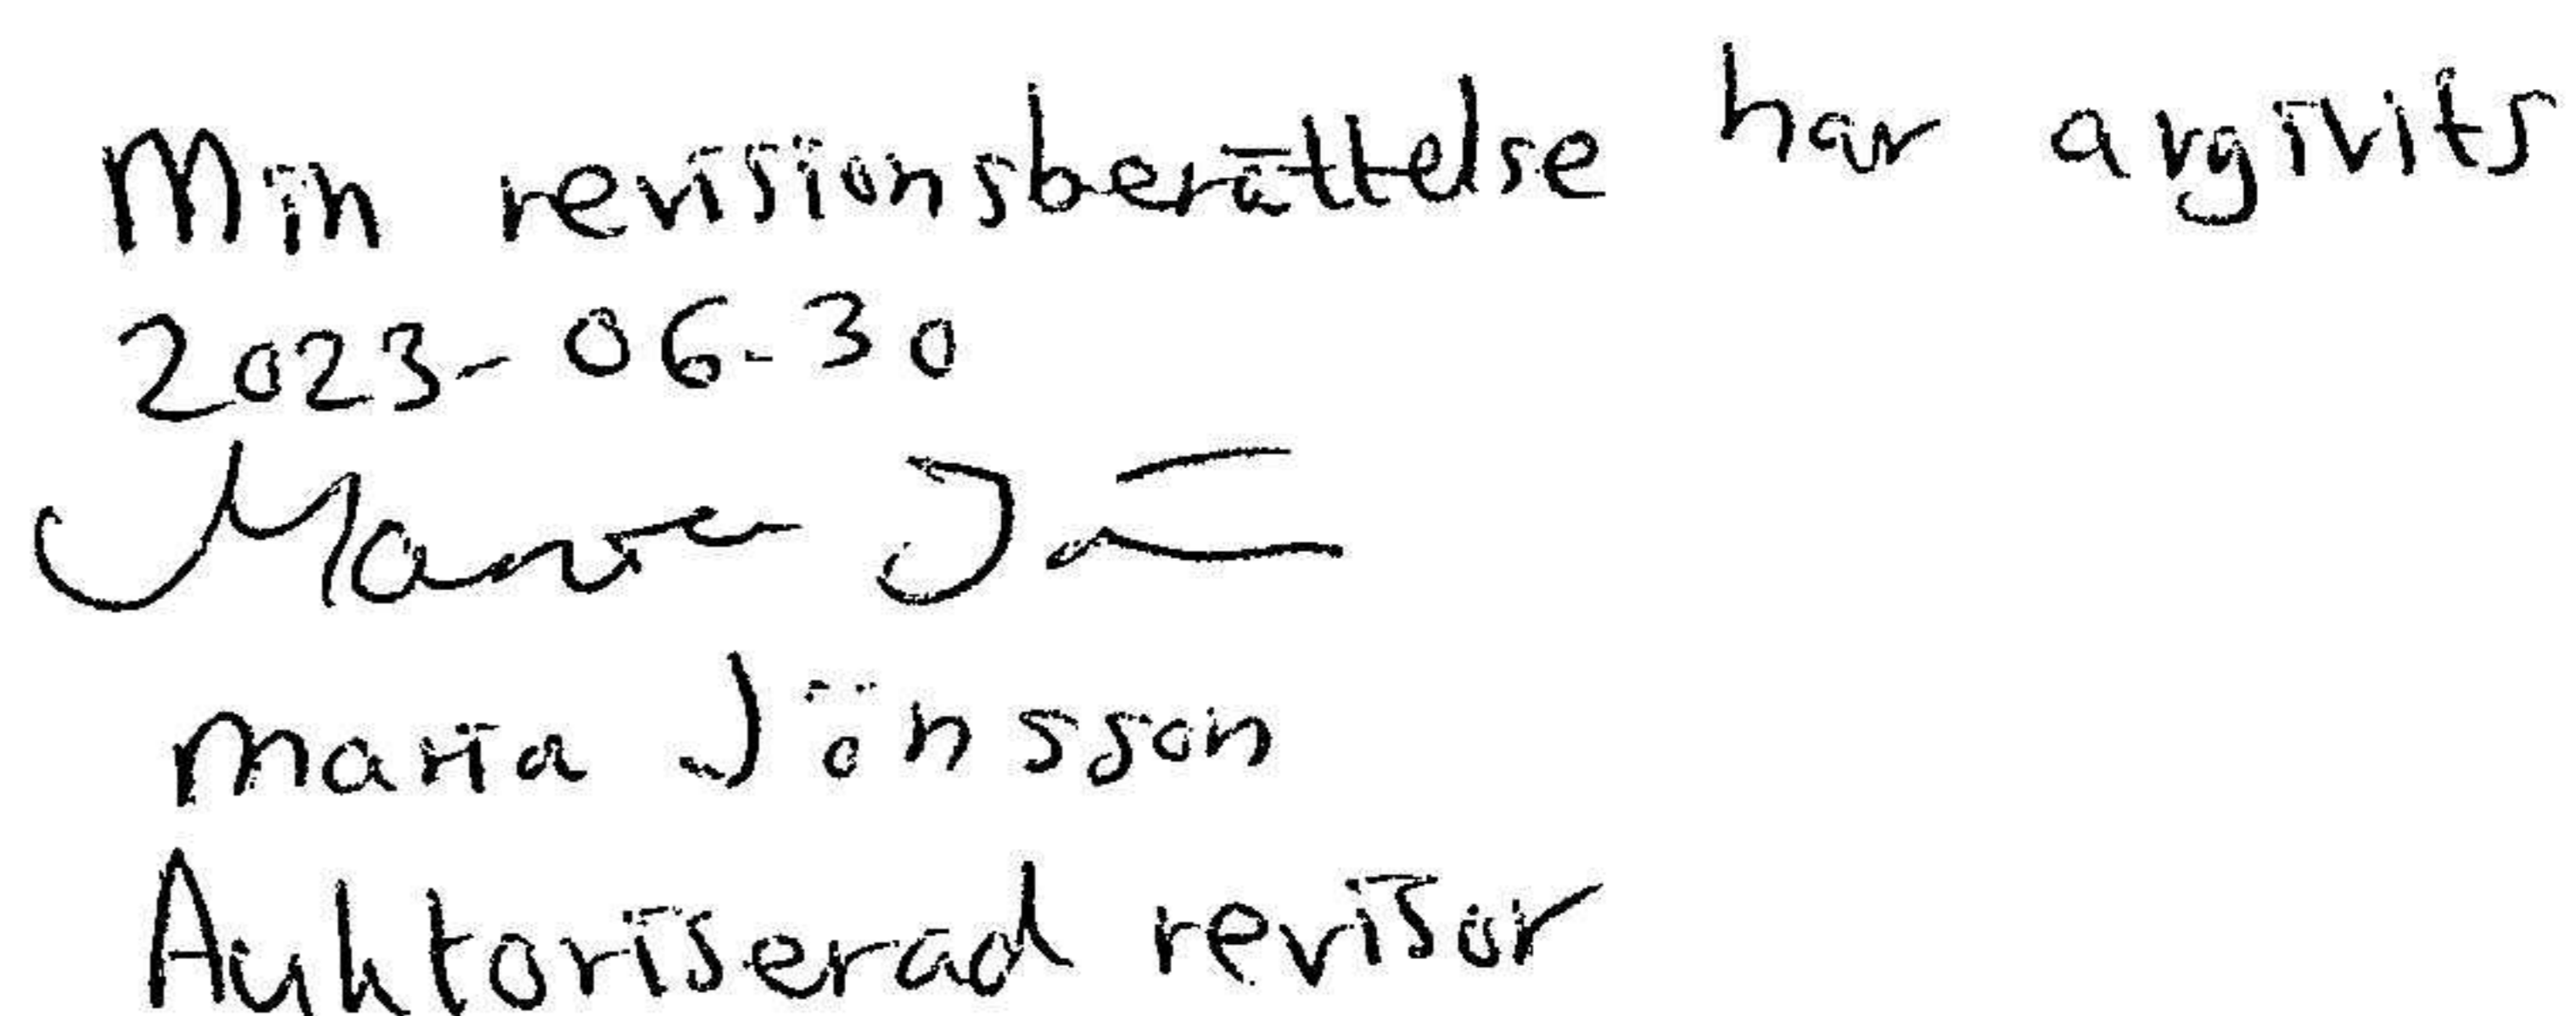 Min revisionsberättelse har avgivits
2023-06-30
Maria Jönsson
Auktoriserad revisor